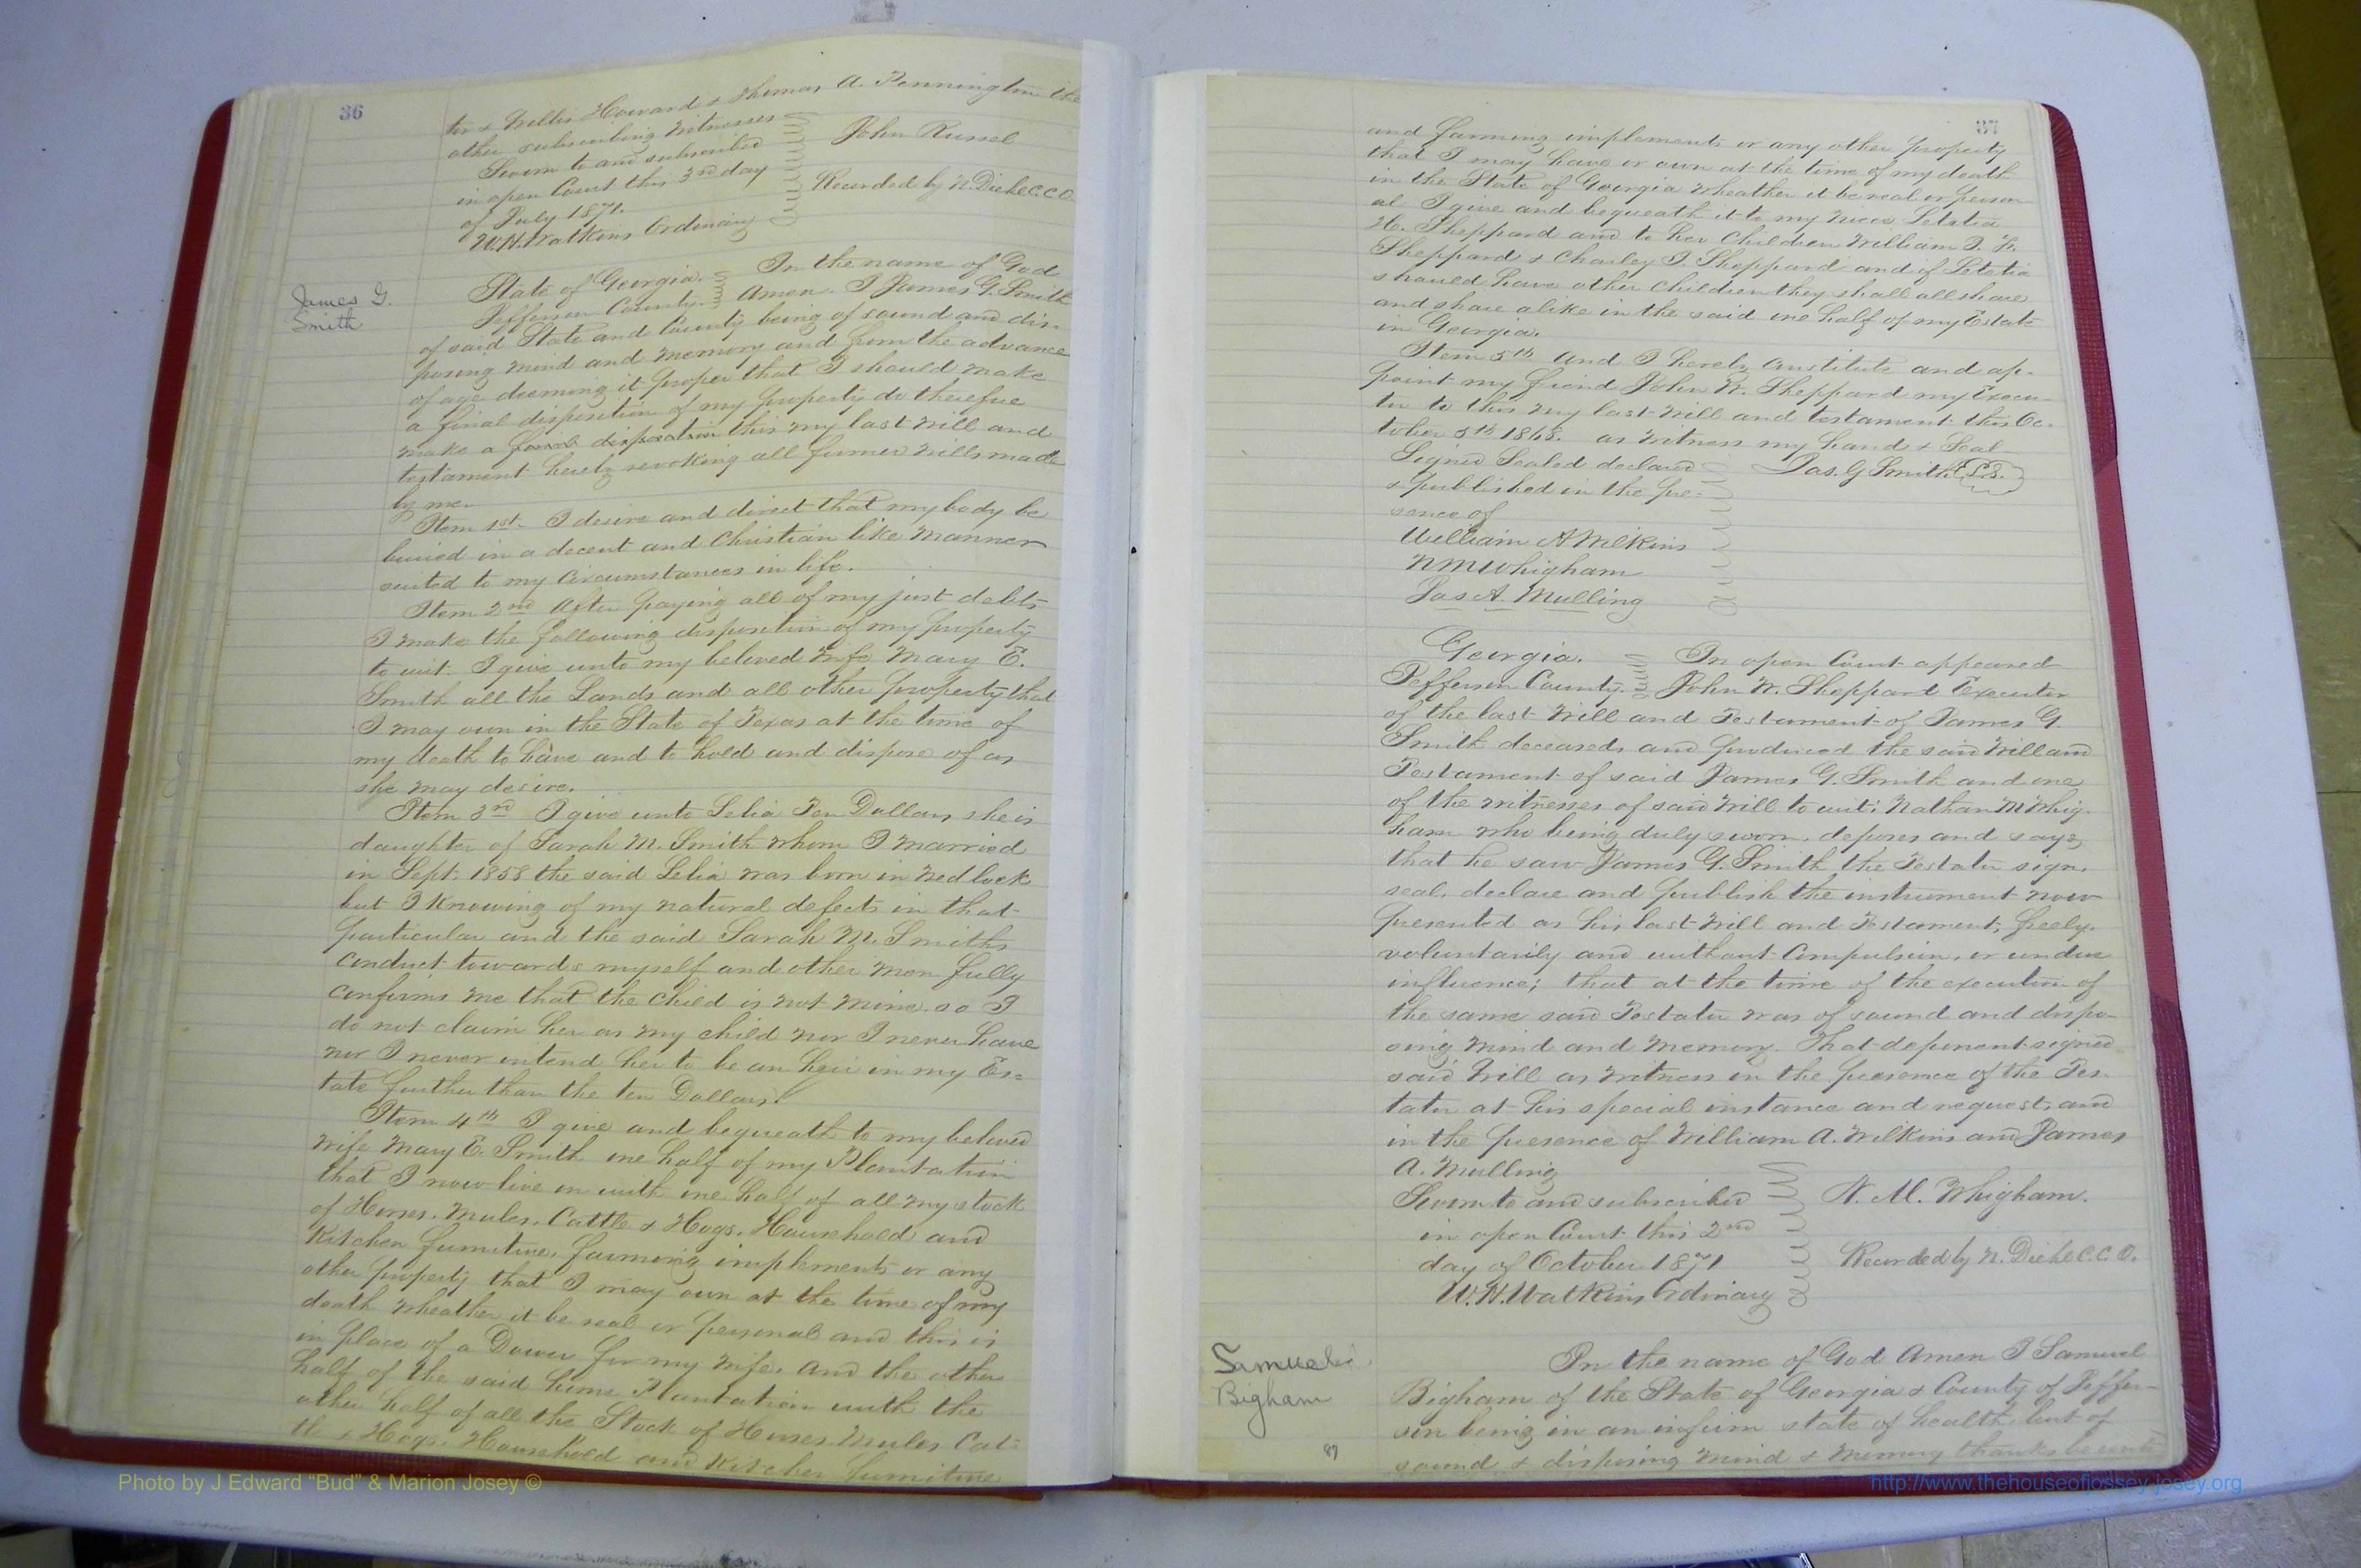 36
tor & Willis Howard & Thomas A. Pennington the
other subscribing witnesses
Sworn to and subscribed
in open Court this 3rd day
of July 1871.
W. H. Watkins Ordinary
John Russel
Recorded by N. Diehl C.C.O.
James G.
Smith
State of Georgia.
Jefferson County.
In the name of God
Amen. I James G. Smith
of said State and County being of sound and dis-
posing mind and memory and from the advance
of age deeming it proper that I should make
a final disposition of my property do therefore
make a final disposition this my last will and
testament hereby revoking all former wills made
by me.
Item 1st. I desire and direct that my body be
buried in a decent and Christian like manner
suited to my circumstances in life.
Item 2nd After paying all of my just debts
I make the following disposition of my property
to wit. I give unto my beloved wife Mary E.
Smith all the Lands and all other property that
I may own in the State of Texas at the time of
my death to have and to hold and dispose of as
she may desire.
Item 3rd I give unto Lelia Ten Dollars she is
daughter of Sarah M. Smith whom I married
in Sept. 1858 the said Lelia was born in wedlock
but I knowing of my natural defects in that
particular and the said Sarah M. Smiths
conduct towards myself and other men fully
confirms me that the child is not mine. so I
do not claim her as my child nor I never have
nor I never intend her to be an heir in my Es=
tate further than the ten Dollars.
Item 4th I give and bequeath to my beloved
wife Mary E. Smith one half of my Plantation
that I now live on with one half of all my stock
of Horses. Mules. Cattle & Hogs. Household and
Kitchen furniture. farming implements or any
other property that I may own at the time of my
death wheather it be real or personal and this is
in place of a Dower for my wife. And the other
half of the said home Plantation with the
other half of all the Stock of Horses Mules Cat-
tle & Hogs. Household and Kitchen furniture
37
and farming implements or any other property
that I may have or own at the time of my death
in the State of Georgia wheather it be real or person
al I give and bequeath it to my niece Letitia
H. Sheppard and to her children William
Sheppard & Charley Sheppard and if Letitia
should have other children they shall all share
and share alike in the said one half of my Estate
in Georgia.
Item 5th And I hereby constitute and ap-
point my friend John W. Sheppard my Execu-
tor to this my last will and testament this Oc-
tober 5th 1868. as witness my hand & Seal
Signed Sealed declared
& published in the pre-
sence of
Jas. G Smith L.S.
William A Wilkins
N M Whigham
Jas A. Mulling
Georgia.
Jefferson County.
In open Court appeared
John W. Sheppard Executor
of the last Will and Testament of James G.
Smith deceased, and produced the said Will and
Testament of said James G. Smith and one
of the witnesses of said Will to wit; Nathan M Whig-
ham who being duly sworn, deposes and says,
that he saw James G. Smith the Testator sign,
seal, declare and publish the instrument now
presented as his last Will and Testament, freely,
voluntarily and without compulsion, or undue
influence; that at the time of the execution of
the same said Testator was of sound and dispo-
sing mind and memory. That deponent signed
said Will as witness in the presence of the Tes-
tator at his special instance and request, and
in the presence of William A. Wilkins and James
A. Mulling
Sworn to and subscribed
in open Court this 2nd
day of October 1871
W. H. Watkins Ordinary
N. M. Whigham.
Recorded by N. Diehl C.C.O.
Samuel
Bigham
In the name of God Amen I Samuel
Bigham of the State of Georgia & County of Jeffer-
son being in an infirm state of health but of
sound & disposing mind & memory thanks be unto
Photo by J Edward "Bud" & Marion Josey ©
http://www.thehouseofjossey-josey.org